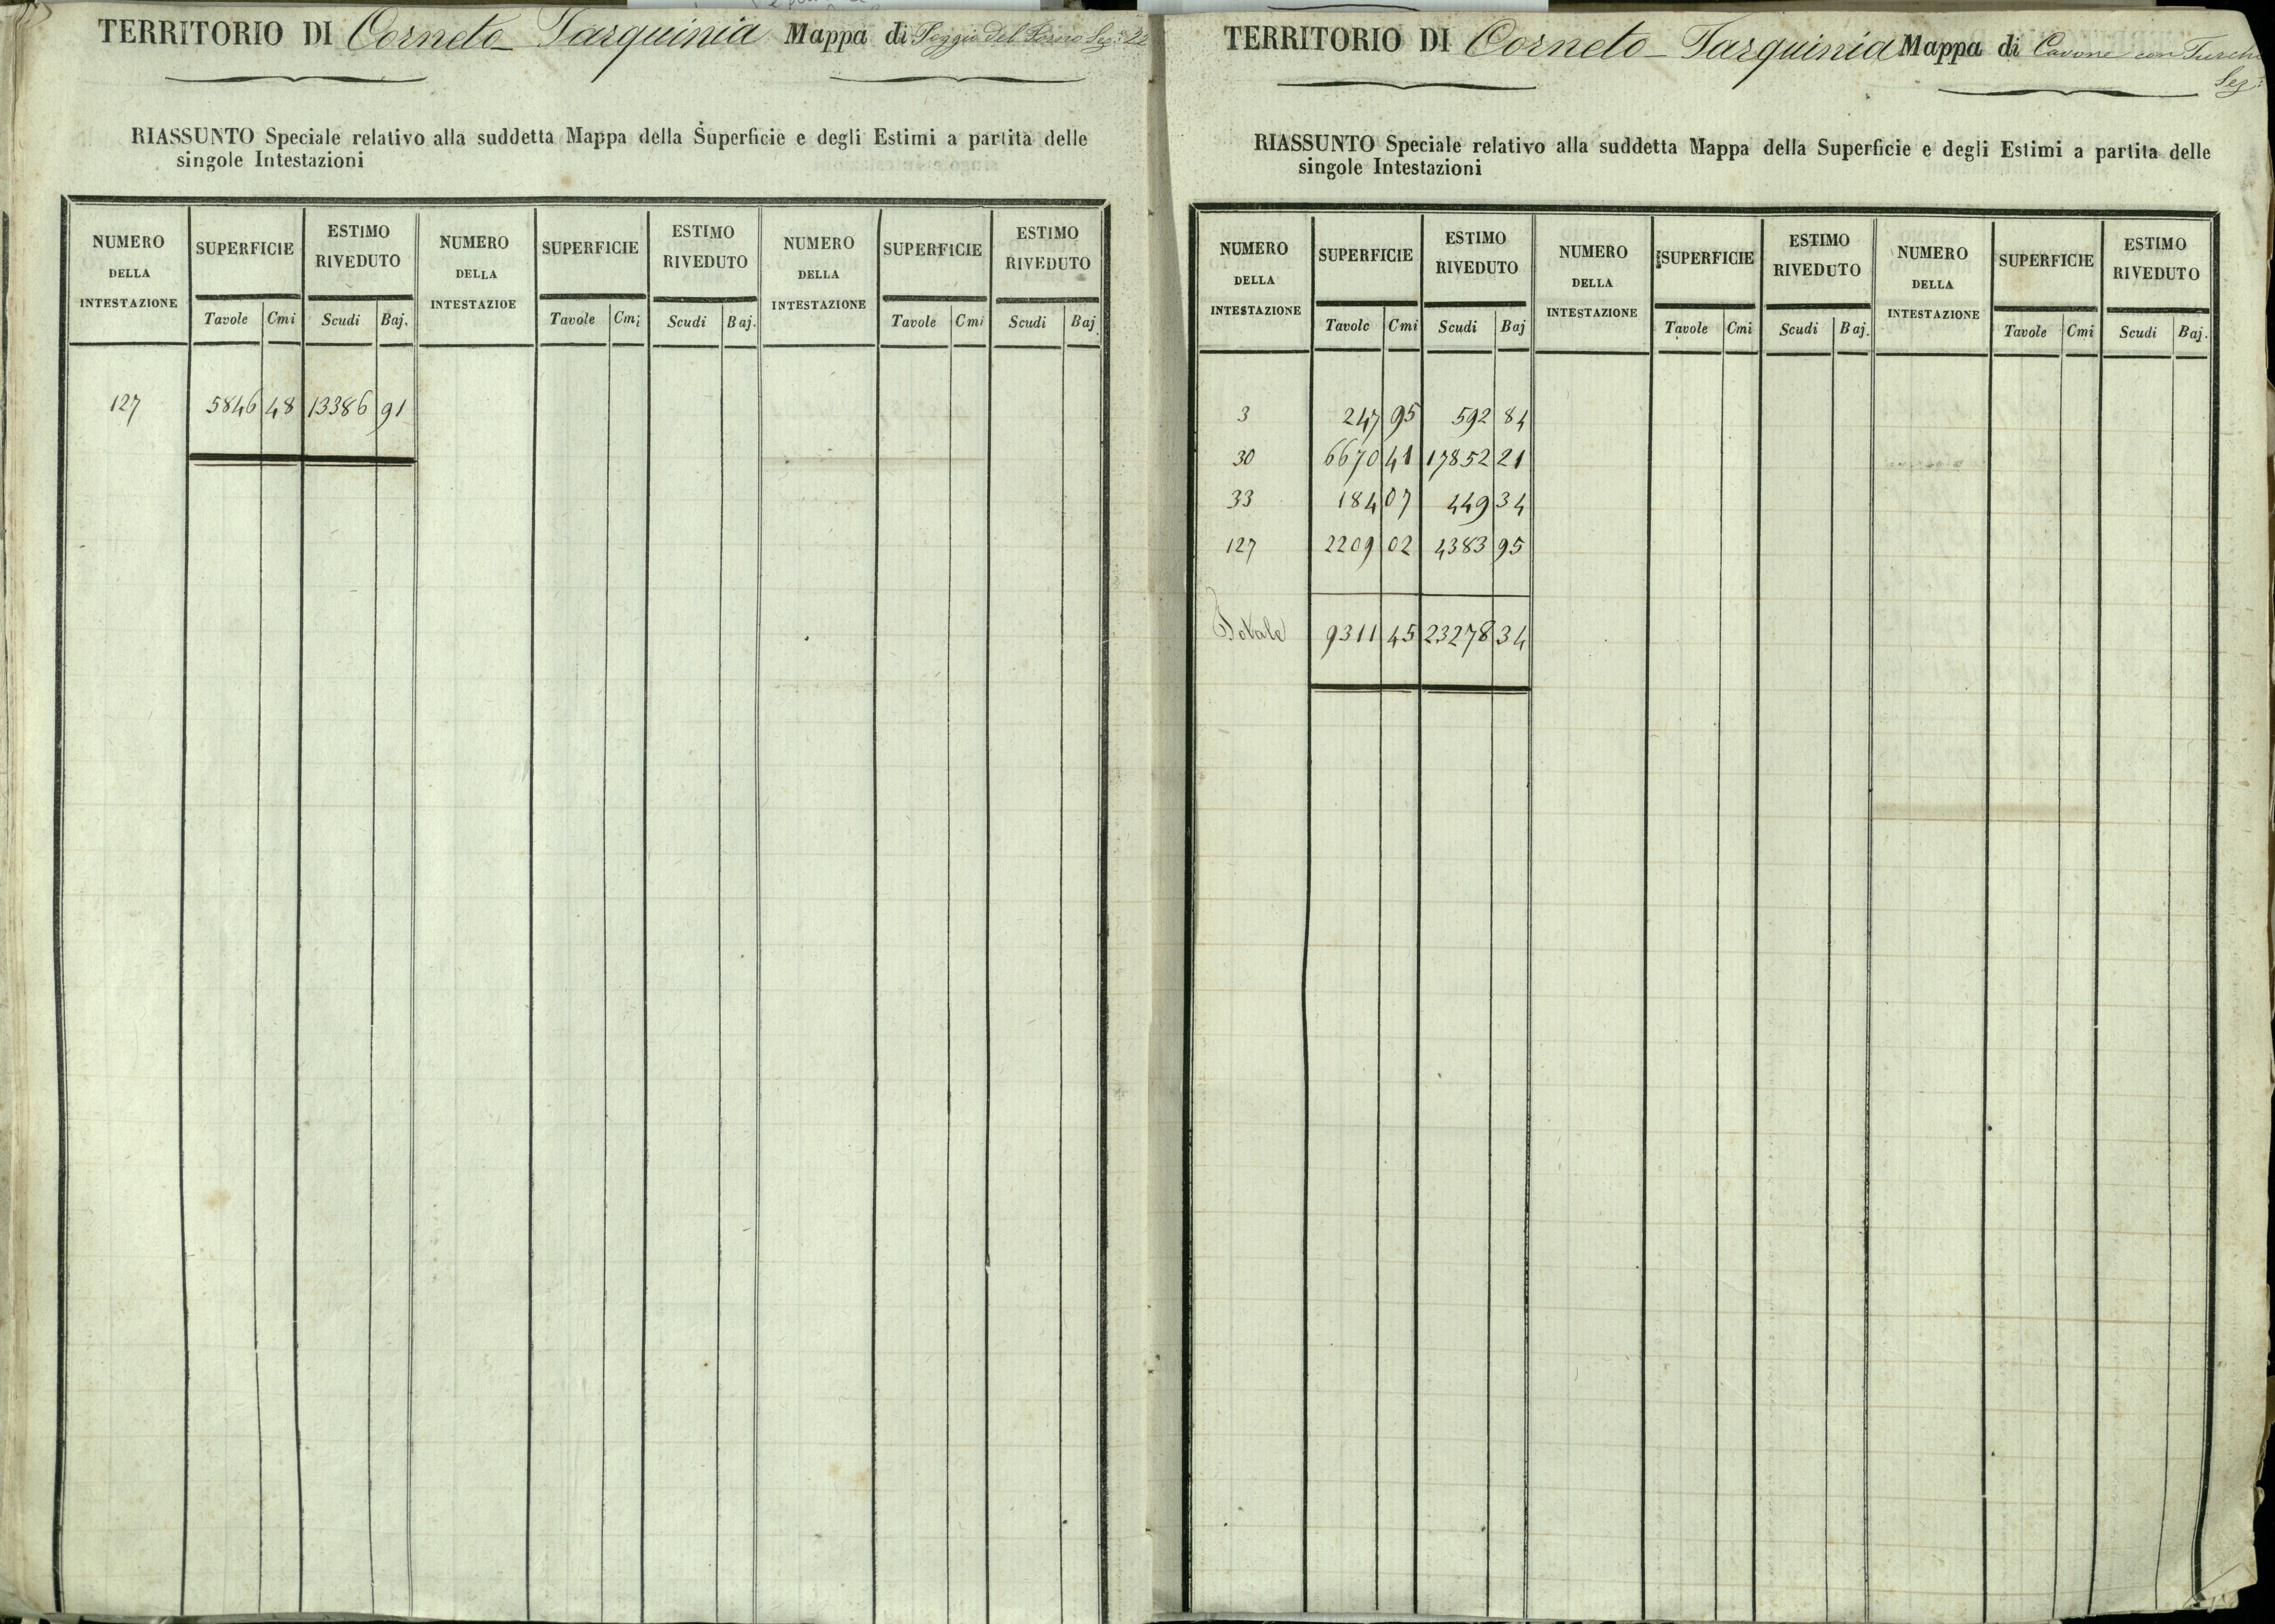 TERRITORIO DI Corneto Tarquinia Mappa di Poggio del Forno Sez. 22
RIASSUNTO Speciale relativo alla suddetta Mappa della Superficie e degli Estimi a partita delle
singole Intestazioni
NUMERO DELLA INTESTAZIONE SUPERFICIE ESTIMO RIVEDUTO NUMERO DELLA INTESTAZIOE SUPERFICIE ESTIMO RIVEDUTO NUMERO DELLA INTESTAZIONE SUPERFICIE ESTIMO RIVEDUTO
Tavole Cmi Scudi Baj. Tavole Cmi Scudi Baj. Tavole Cmi Scudi Baj.
127 5846 48 13386 91
TERRITORIO DI Corneto-Tarquinia Mappa di Cavone con Turchi
Sez.
RIASSUNTO Speciale relativo alla suddetta Mappa della Superficie e degli Estimi a partita delle
singole Intestazioni
NUMERO DELLA INTESTAZIONE SUPERFICIE ESTIMO RIVEDUTO NUMERO DELLA INTESTAZIONE SUPERFICIE ESTIMO RIVEDUTO NUMERO DELLA INTESTAZIONE SUPERFICIE ESTIMO RIVEDUTO
Tavole Cmi Scudi Baj Tavole Cmi Scudi Baj. Tavole Cmi Scudi Baj.
3 247 95 592 84
30 6670 41 17852 21
33 184 07 449 34
127 2209 02 4383 95
Totale 9311 45 23278 34